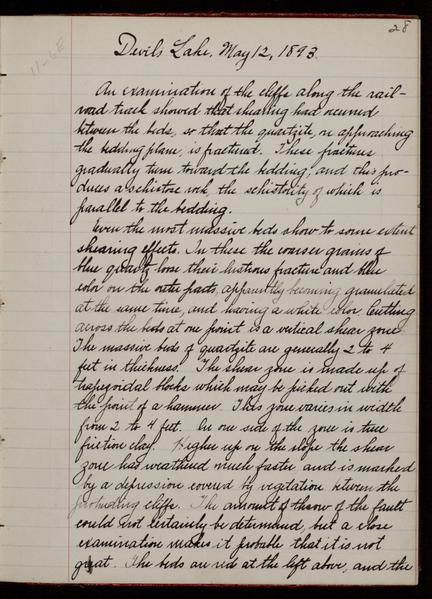 28
11-6E
Devils Lake, May 12, 1893.
An examination of the cliffs along the rail-
road track showed that shearing had occurred
between the beds, so that the quartzite, on approaching
the bedding plane, is fractured. These fractures
gradually turn toward the bedding, and this pro-
duces a schistose rock the schistosity of which is
parallel to the bedding.
Even the most massive beds show to some extent
shearing effects. In these the coarser grains of
blue quartz loose their lustrous fracture and blue
color on the outer parts, apparently becoming granulated
at the same time, and having a white color. Cutting
across the beds at one point is a vertical shear zone.
The massive beds of quartzite are generally 2 to 4
feet in thickness. The shear zone is made up of
trapezoidal blocks which may be picked out with
the point of a hammer. This zone varies in width
from 2 to 4 feet. On one side of the zone is true
friction clay. Higher up on the slope the shear
zone has weathered much faster, and is marked
by a depression covered by vegetation between the
protruding cliffs. The amount of throw of the fault
could not certainly be determined, but a close
examination makes it probable that it is not
great. The beds are red at the left above, and the